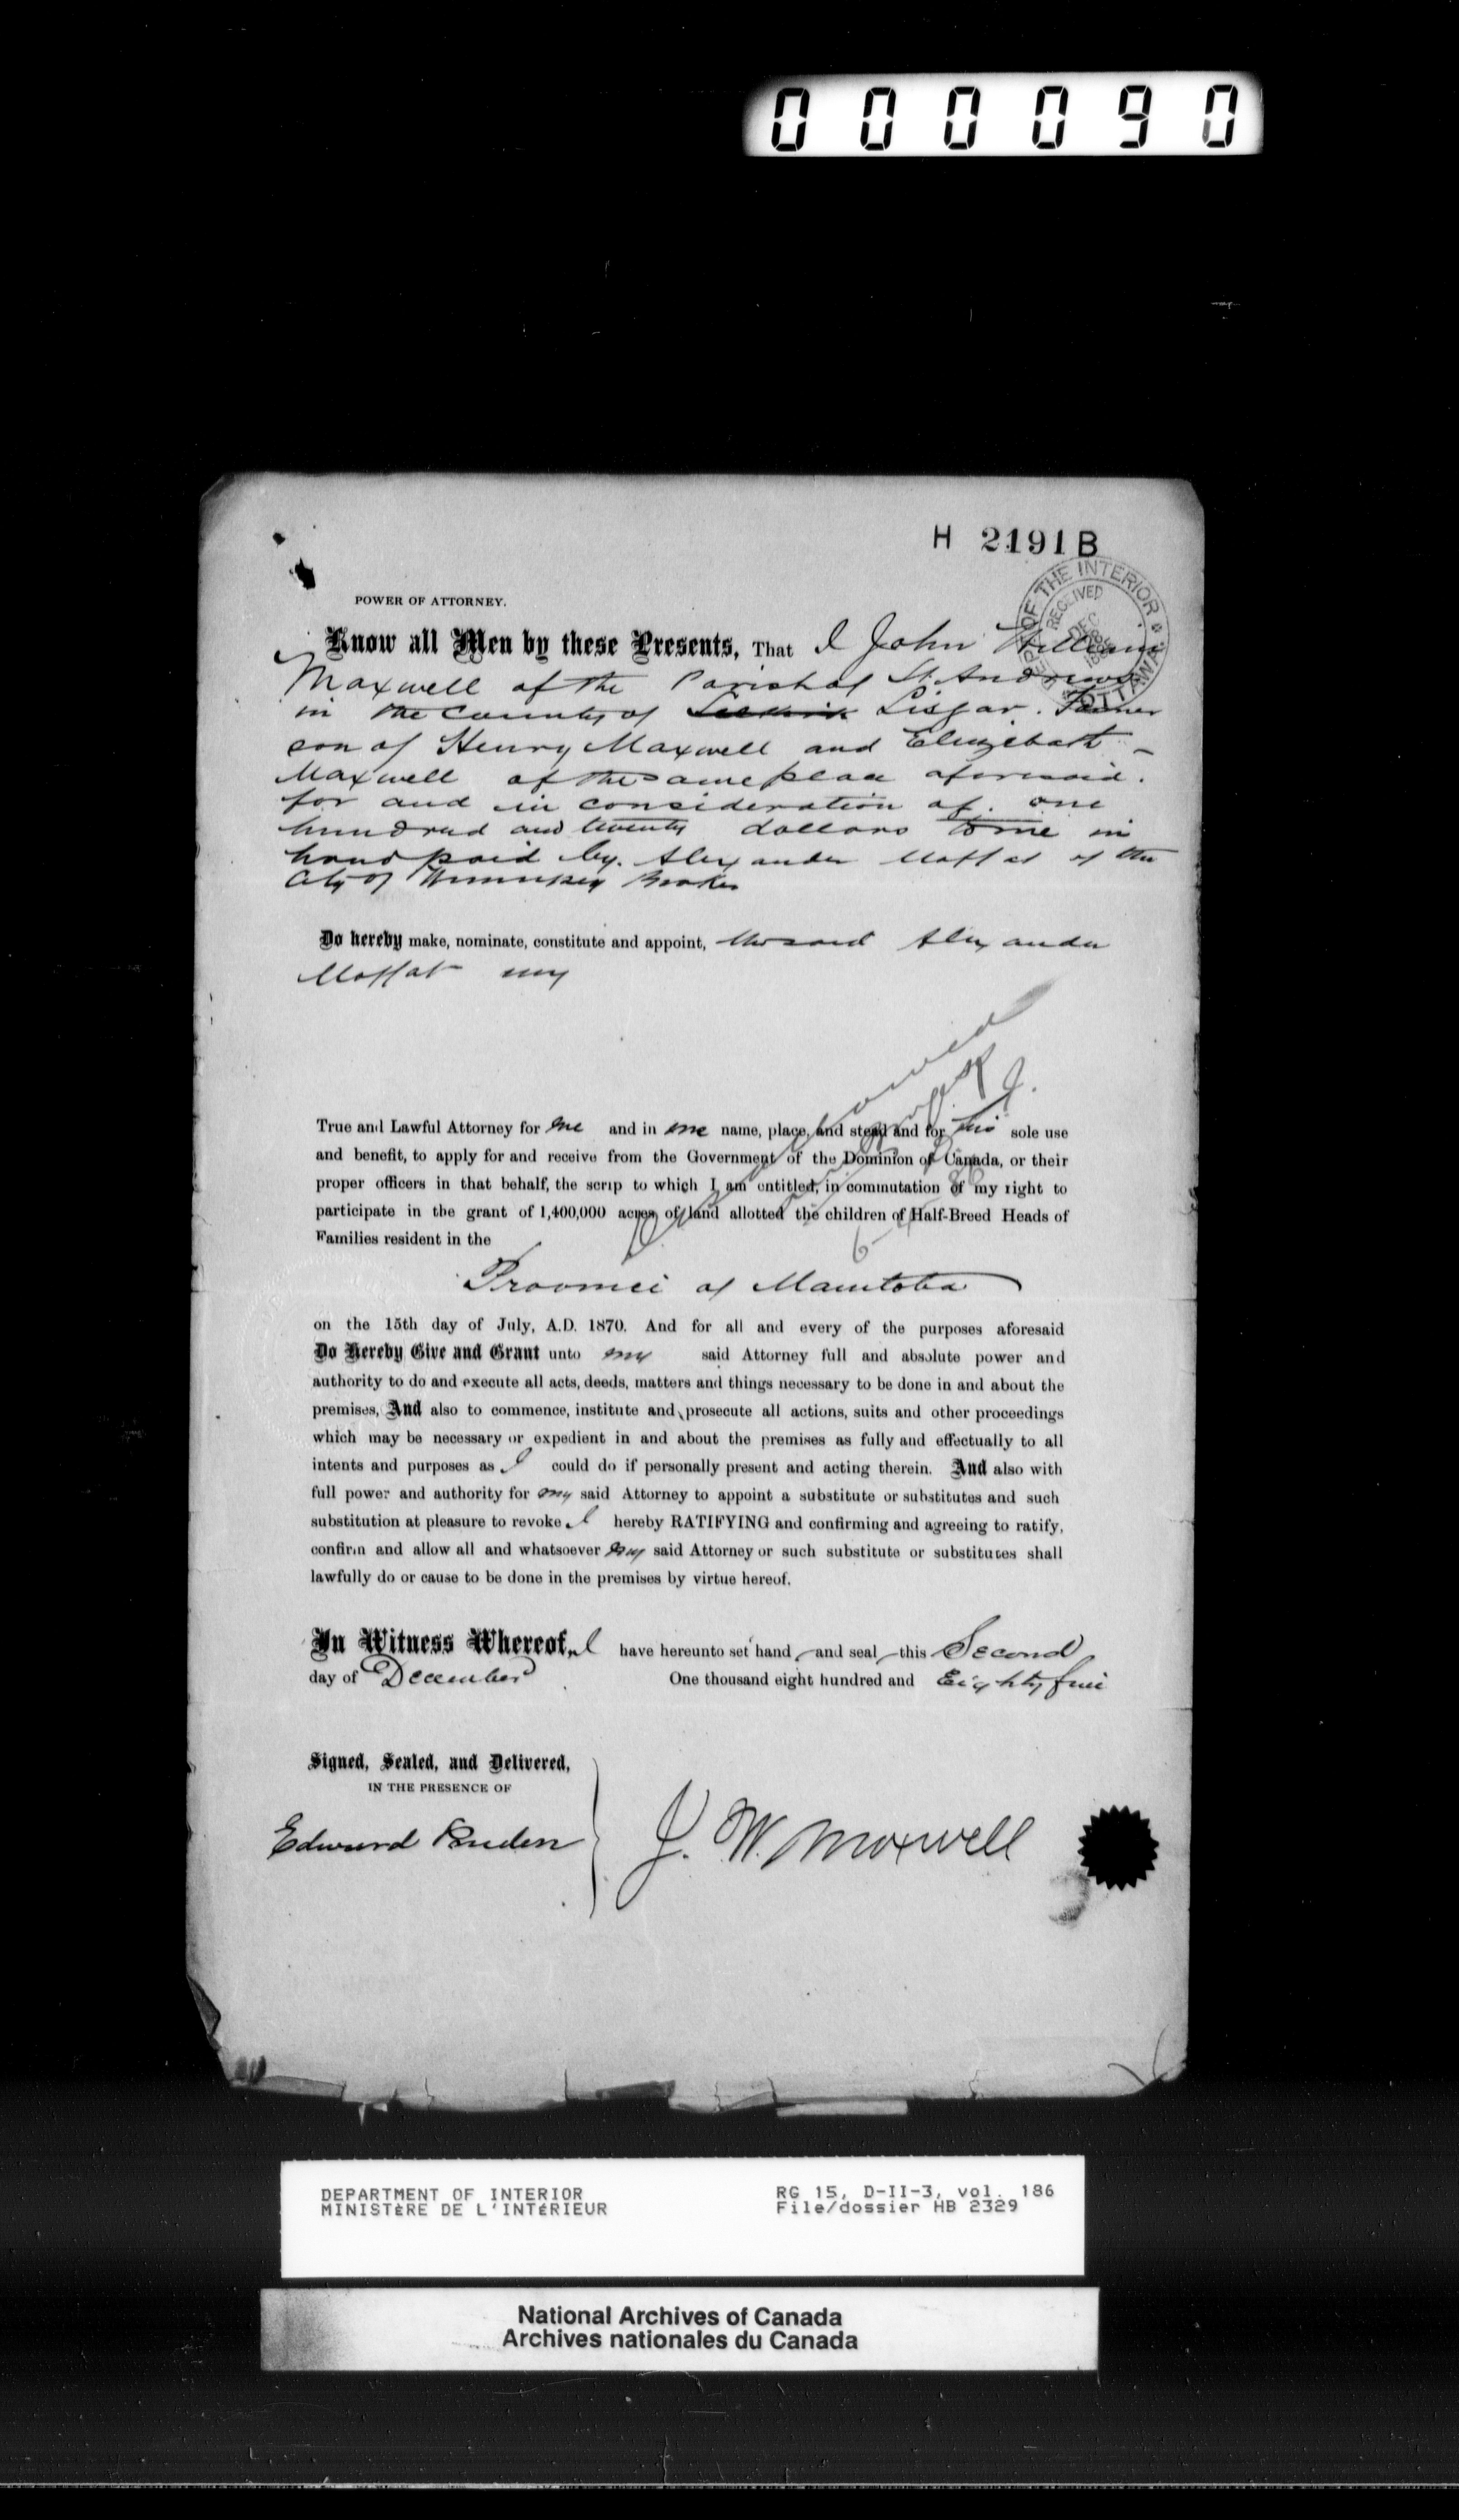 000090
H 2191 B
DEPT OF THE INTERIOR OTTAWA
RECEIVED
DEC
POWER OF ATTORNEY.
Know all Men by these Presents, That I John William
Maxwell of the Parish of St. Andrews
in the County of Lisgar. Farmer
son of Henry Maxwell and Elizebath
Maxwell of the same place aforesaid.
for and in consideration of. one
hundred and twenty dollars to me in
hand paid by. Alexander Moffat of the
City of Winnipeg Broker
Do hereby make, nominate, constitute and appoint, the said Alexander
Moffat my
True and Lawful Attorney for me and in me name, place, and stead and for his sole use
and benefit, to apply for and receive from the Government of the Dominion of Canada, or their
proper officers in that behalf, the scrip to which I am entitled, in commutation of my right to
participate in the grant of 1,400,000 acres of land allotted the children of Half-Breed Heads of
Families resident in the
Provinci of Manitoba
on the 15th day of July, A.D. 1870. And for all and every of the purposes aforesaid
Do Hereby Give and Grant unto my said Attorney full and absolute power and
authority to do and execute all acts, deeds, matters and things necessary to be done in and about the
premises, And also to commence, institute and prosecute all actions, suits and other proceedings
which may be necessary or expedient in and about the premises as fully and effectually to all
intents and purposes as I could do if personally present and acting therein. And also with
full power and authority for my said Attorney to appoint a substitute or substitutes and such
substitution at pleasure to revoke I hereby RATIFYING and confirming and agreeing to ratify,
confirm and allow all and whatsoever my said Attorney or such substitute or substitutes shall
lawfully do or cause to be done in the premises by virtue hereof.
In Witness Whereof, I have hereunto set hand and seal this Second
day of December One thousand eight hundred and Eighty five
Signed, Sealed, and Delivered,
IN THE PRESENCE OF
Edward J. W. Maxwell
DEPARTMENT OF INTERIOR RG 15, D-II-3, vol. 186
MINISTÈRE DE L'INTÉRIEUR File/dossier HB 2329
National Archives of Canada
Archives nationales du Canada